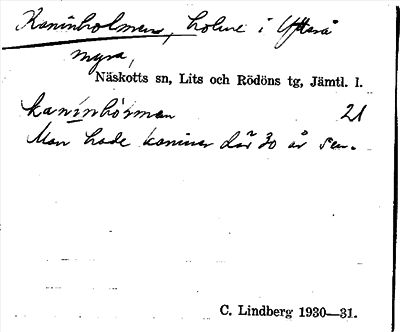 Kaninholmen, holme i Ytterå
myra,
Näskotts sn, Lits och Rödöns tg, Jämtl. l.
kanínhòrmən 21
Man hade kaniner där 30 år sen.
C. Lindberg 1930—31.